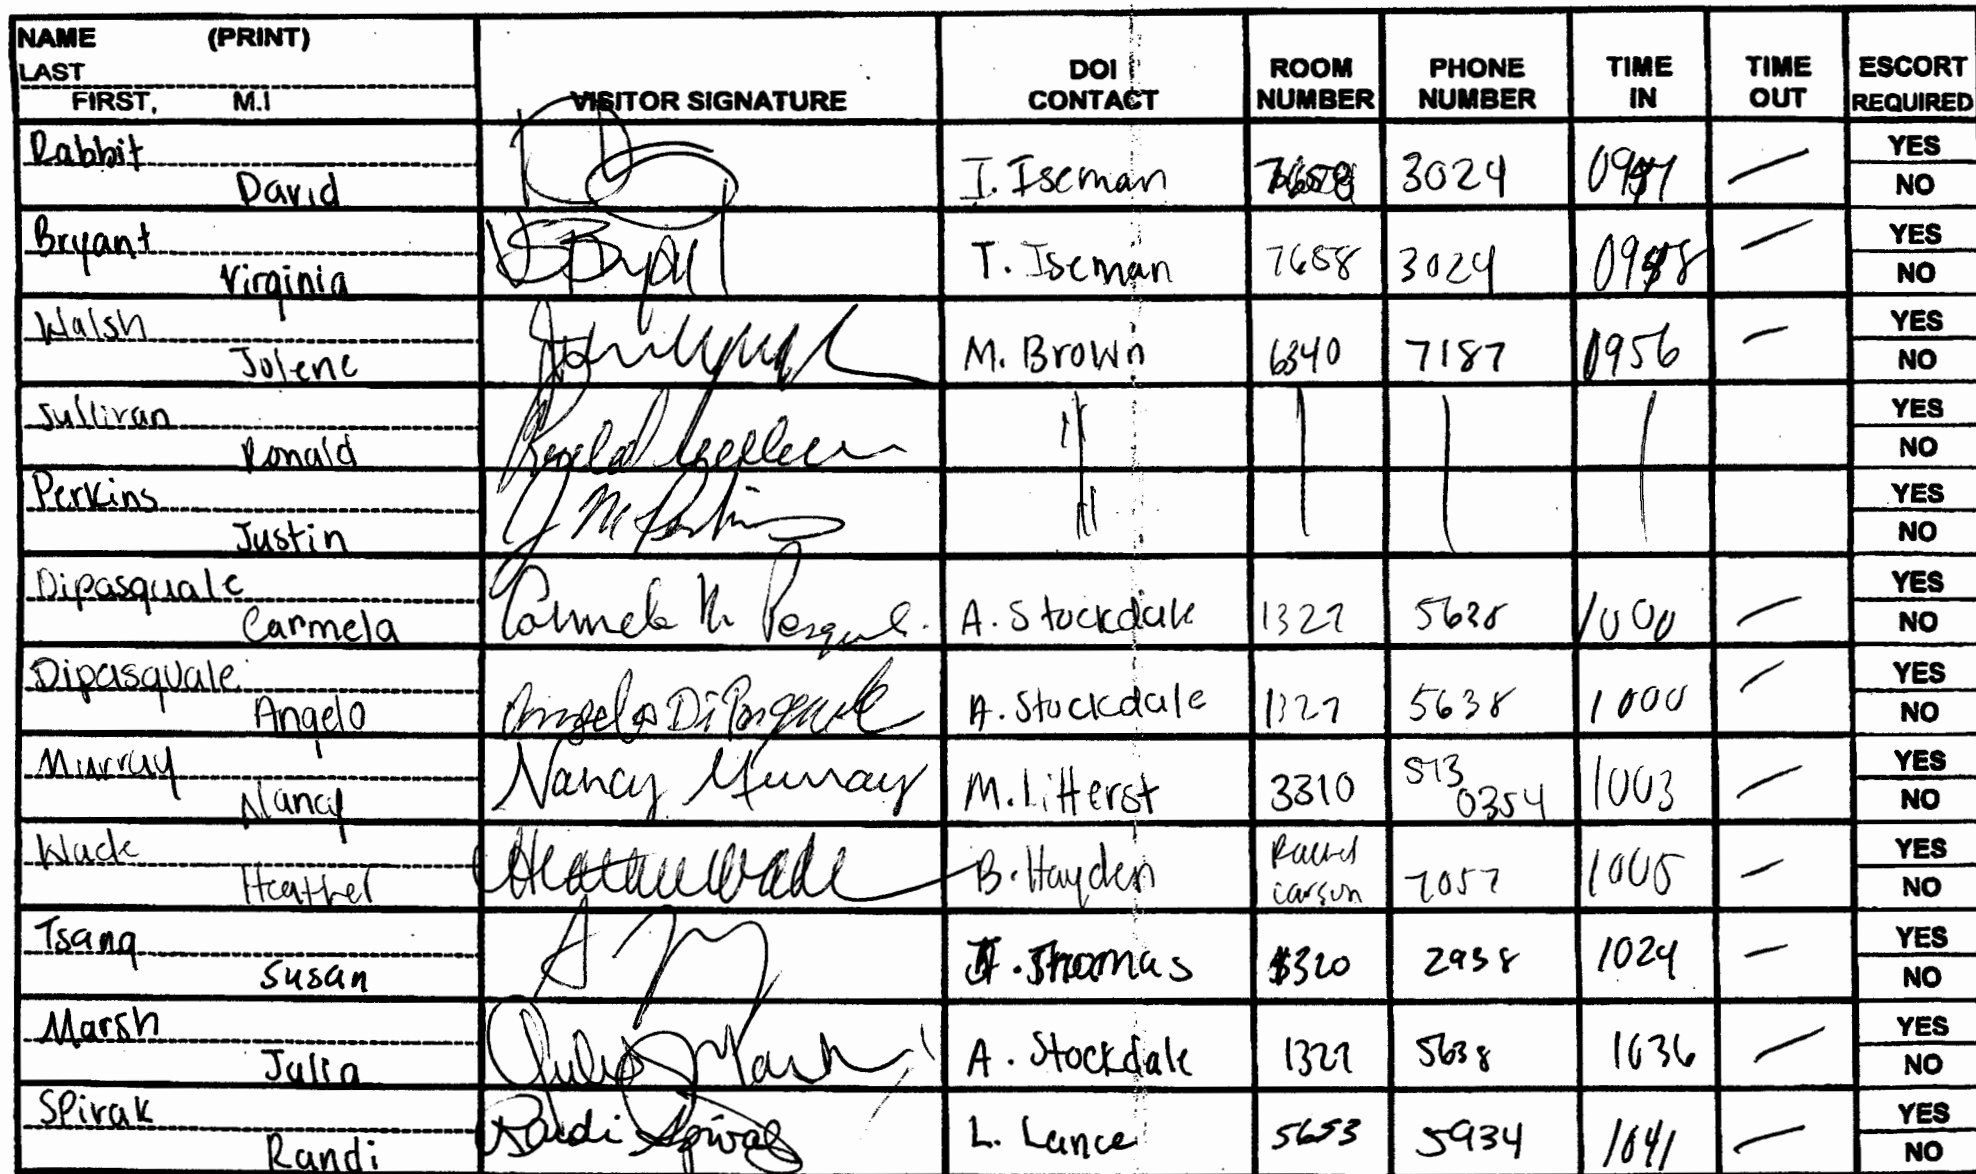 NAME (PRINT)
LAST
FIRST, M.I
VISITOR SIGNATURE
DOI CONTACT
ROOM NUMBER
PHONE NUMBER
TIME IN
TIME OUT
ESCORT REQUIRED
Rabbit
David
I. Iseman 3024 — YES NO
Bryant
Virginia
T. Iseman 7658 3024 — YES NO
Walsh
Jolene
M. Brown 6340 7187 0956 — YES NO
Sullivan
Ronald
YES NO
Perkins
Justin
J M Perkins YES NO
Dipasquale
Carmela
A. Stockdale 1327 5638 1000 — YES NO
Dipasquale
Angelo
Angelo DiPasquale A. Stockdale 1327 5638 1000 — YES NO
Murray
Nancy
Nancy Murray M. Litterst 3310 513 0354 1003 — YES NO
Wade
Heather
Heather Wade B. Hayden Rachel Carson 7057 1005 — YES NO
Tsang
Susan
Thomas 2938 1024 — YES NO
Marsh
Julia
Julia Marsh A. Stockdale 1327 5638 1036 — YES NO
Spivak
Randi
Randi Spivak L. Lance 5653 5934 1041 — YES NO